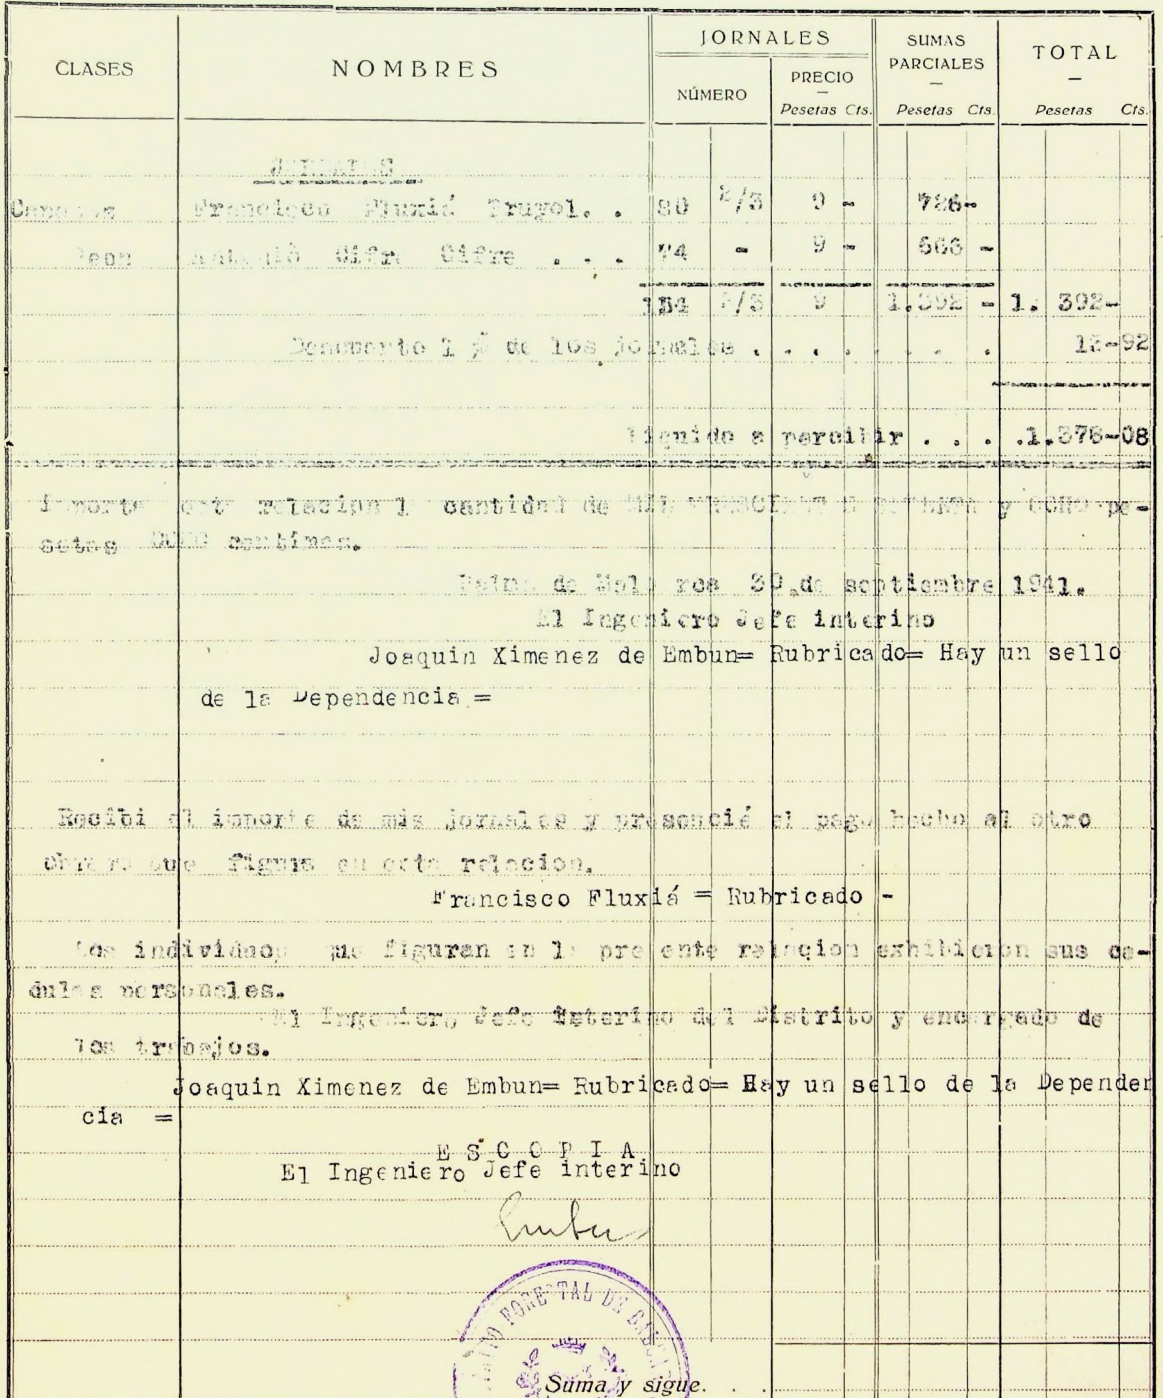 JORNALES SUMAS
CLASES NOMBRES PARCIALES TOTAL
NÚMERO PRECIO
Pesetas Cts. Pesetas Cts. Pesetas Cts.
JORNALES
Francisco Fluxiá Truyol. . 80 2/3 9 - 726-
Peon Antonio Cifre Cifre . . . 74 - 9 - 666 -
154 2/3 9 1.392 - 1. 392-
Descuento 1 % de los jornales . . . . . . . 13-92
Liquido a percibir . . . .1.378-08
Importa esta relacion la cantidad de MIL TRESCIENTAS SETENTA y OCHO pe-
setas OCHO centimos.
Palma de Mallorca 30 de septiembre 1941.
El Ingeniero Jefe interino
Joaquin Ximenez de Embun= Rubricado= Hay un sello
de la Dependencia =
Recibi el importe de mis jornales y presencié el pago hecho al otro
obrero que figura en esta relacion.
Francisco Fluxiá = Rubricado -
Los individuos que figuran en la presente relacion exhibieron sus ce-
dulas personales.
El Ingeniero Jefe interino del Distrito y encargado de
los trabajos.
Joaquin Ximenez de Embun= Rubricado= Hay un sello de la Dependen
cia =
E S C O P I A
El Ingeniero Jefe interino
Embun
FORESTAL DE
Suma y sigue. . .